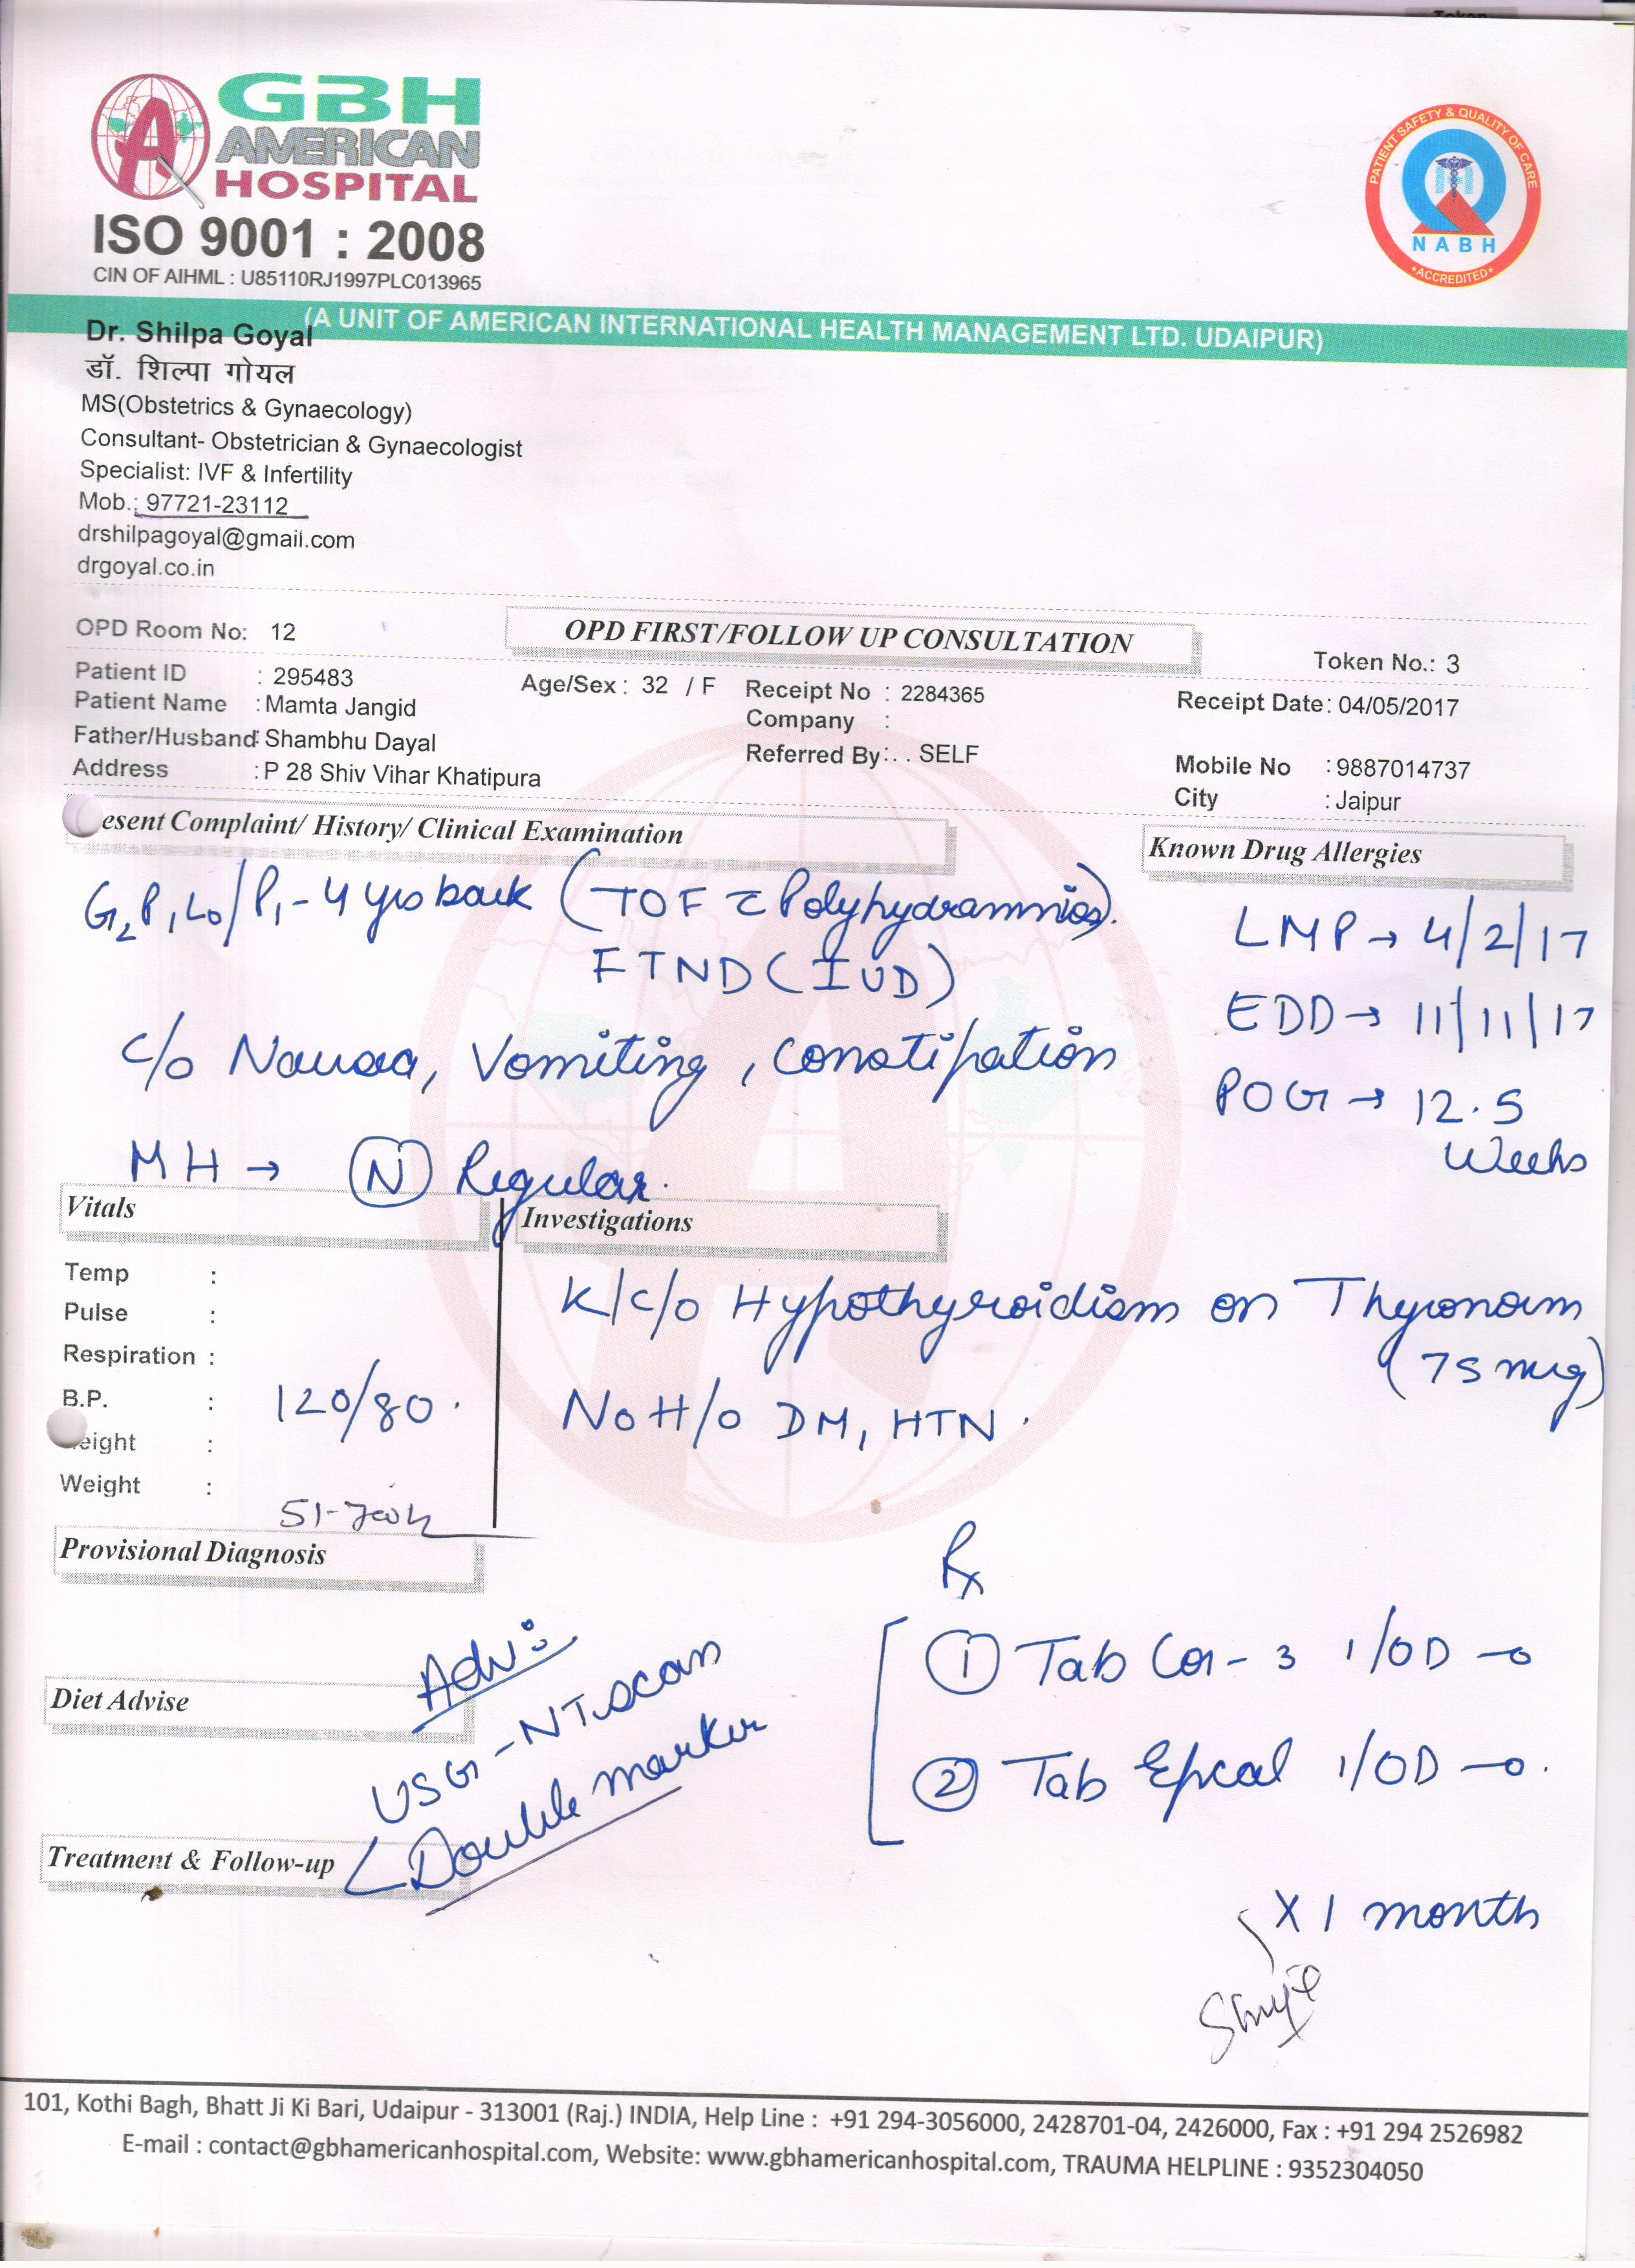 GBH
AMERICAN
HOSPITAL
ISO 9001 : 2008
CIN OF AIHML : U85110RJ1997PLC013965
PATIENT SAFETY & QUALITY OF CARE
NABH
*ACCREDITED*
(A UNIT OF AMERICAN INTERNATIONAL HEALTH MANAGEMENT LTD. UDAIPUR)
Dr. Shilpa Goyal
डॉ. शिल्पा गोयल
MS(Obstetrics & Gynaecology)
Consultant- Obstetrician & Gynaecologist
Specialist: IVF & Infertility
Mob.: 97721-23112
drshilpagoyal@gmail.com
drgoyal.co.in
OPD Room No: 12
OPD FIRST/FOLLOW UP CONSULTATION
Token No.: 3
Patient ID : 295483
Age/Sex : 32 / F
Receipt No : 2284365
Receipt Date: 04/05/2017
Patient Name : Mamta Jangid
Company :
Father/Husband: Shambhu Dayal
Referred By: . . SELF
Mobile No : 9887014737
Address : P 28 Shiv Vihar Khatipura
City : Jaipur
esent Complaint/ History/ Clinical Examination
Known Drug Allergies
G2P1L0/P1 - 4 yrs back (TOF c̄ Polyhydramnios).
FTND (IUD)
LMP → 4/2/17
EDD → 11/11/17
POG → 12.5
Weeks
c/o Nausea, Vomiting, Constipation
MH → (N) Regular.
Vitals
Investigations
Temp :
Pulse :
Respiration :
B.P. : 120/80.
eight :
Weight :
K/c/o Hypothyroidism on Thyronorm
(75 mcg)
No H/o DM, HTN.
Provisional Diagnosis
Rx
① Tab Cor-3 1/OD
② Tab Epcal 1/OD
x 1 month
Adv:
USG-NT scan
Double marker
Diet Advise
Treatment & Follow-up
101, Kothi Bagh, Bhatt Ji Ki Bari, Udaipur - 313001 (Raj.) INDIA, Help Line : +91 294-3056000, 2428701-04, 2426000, Fax : +91 294 2526982
E-mail : contact@gbhamericanhospital.com, Website: www.gbhamericanhospital.com, TRAUMA HELPLINE : 9352304050